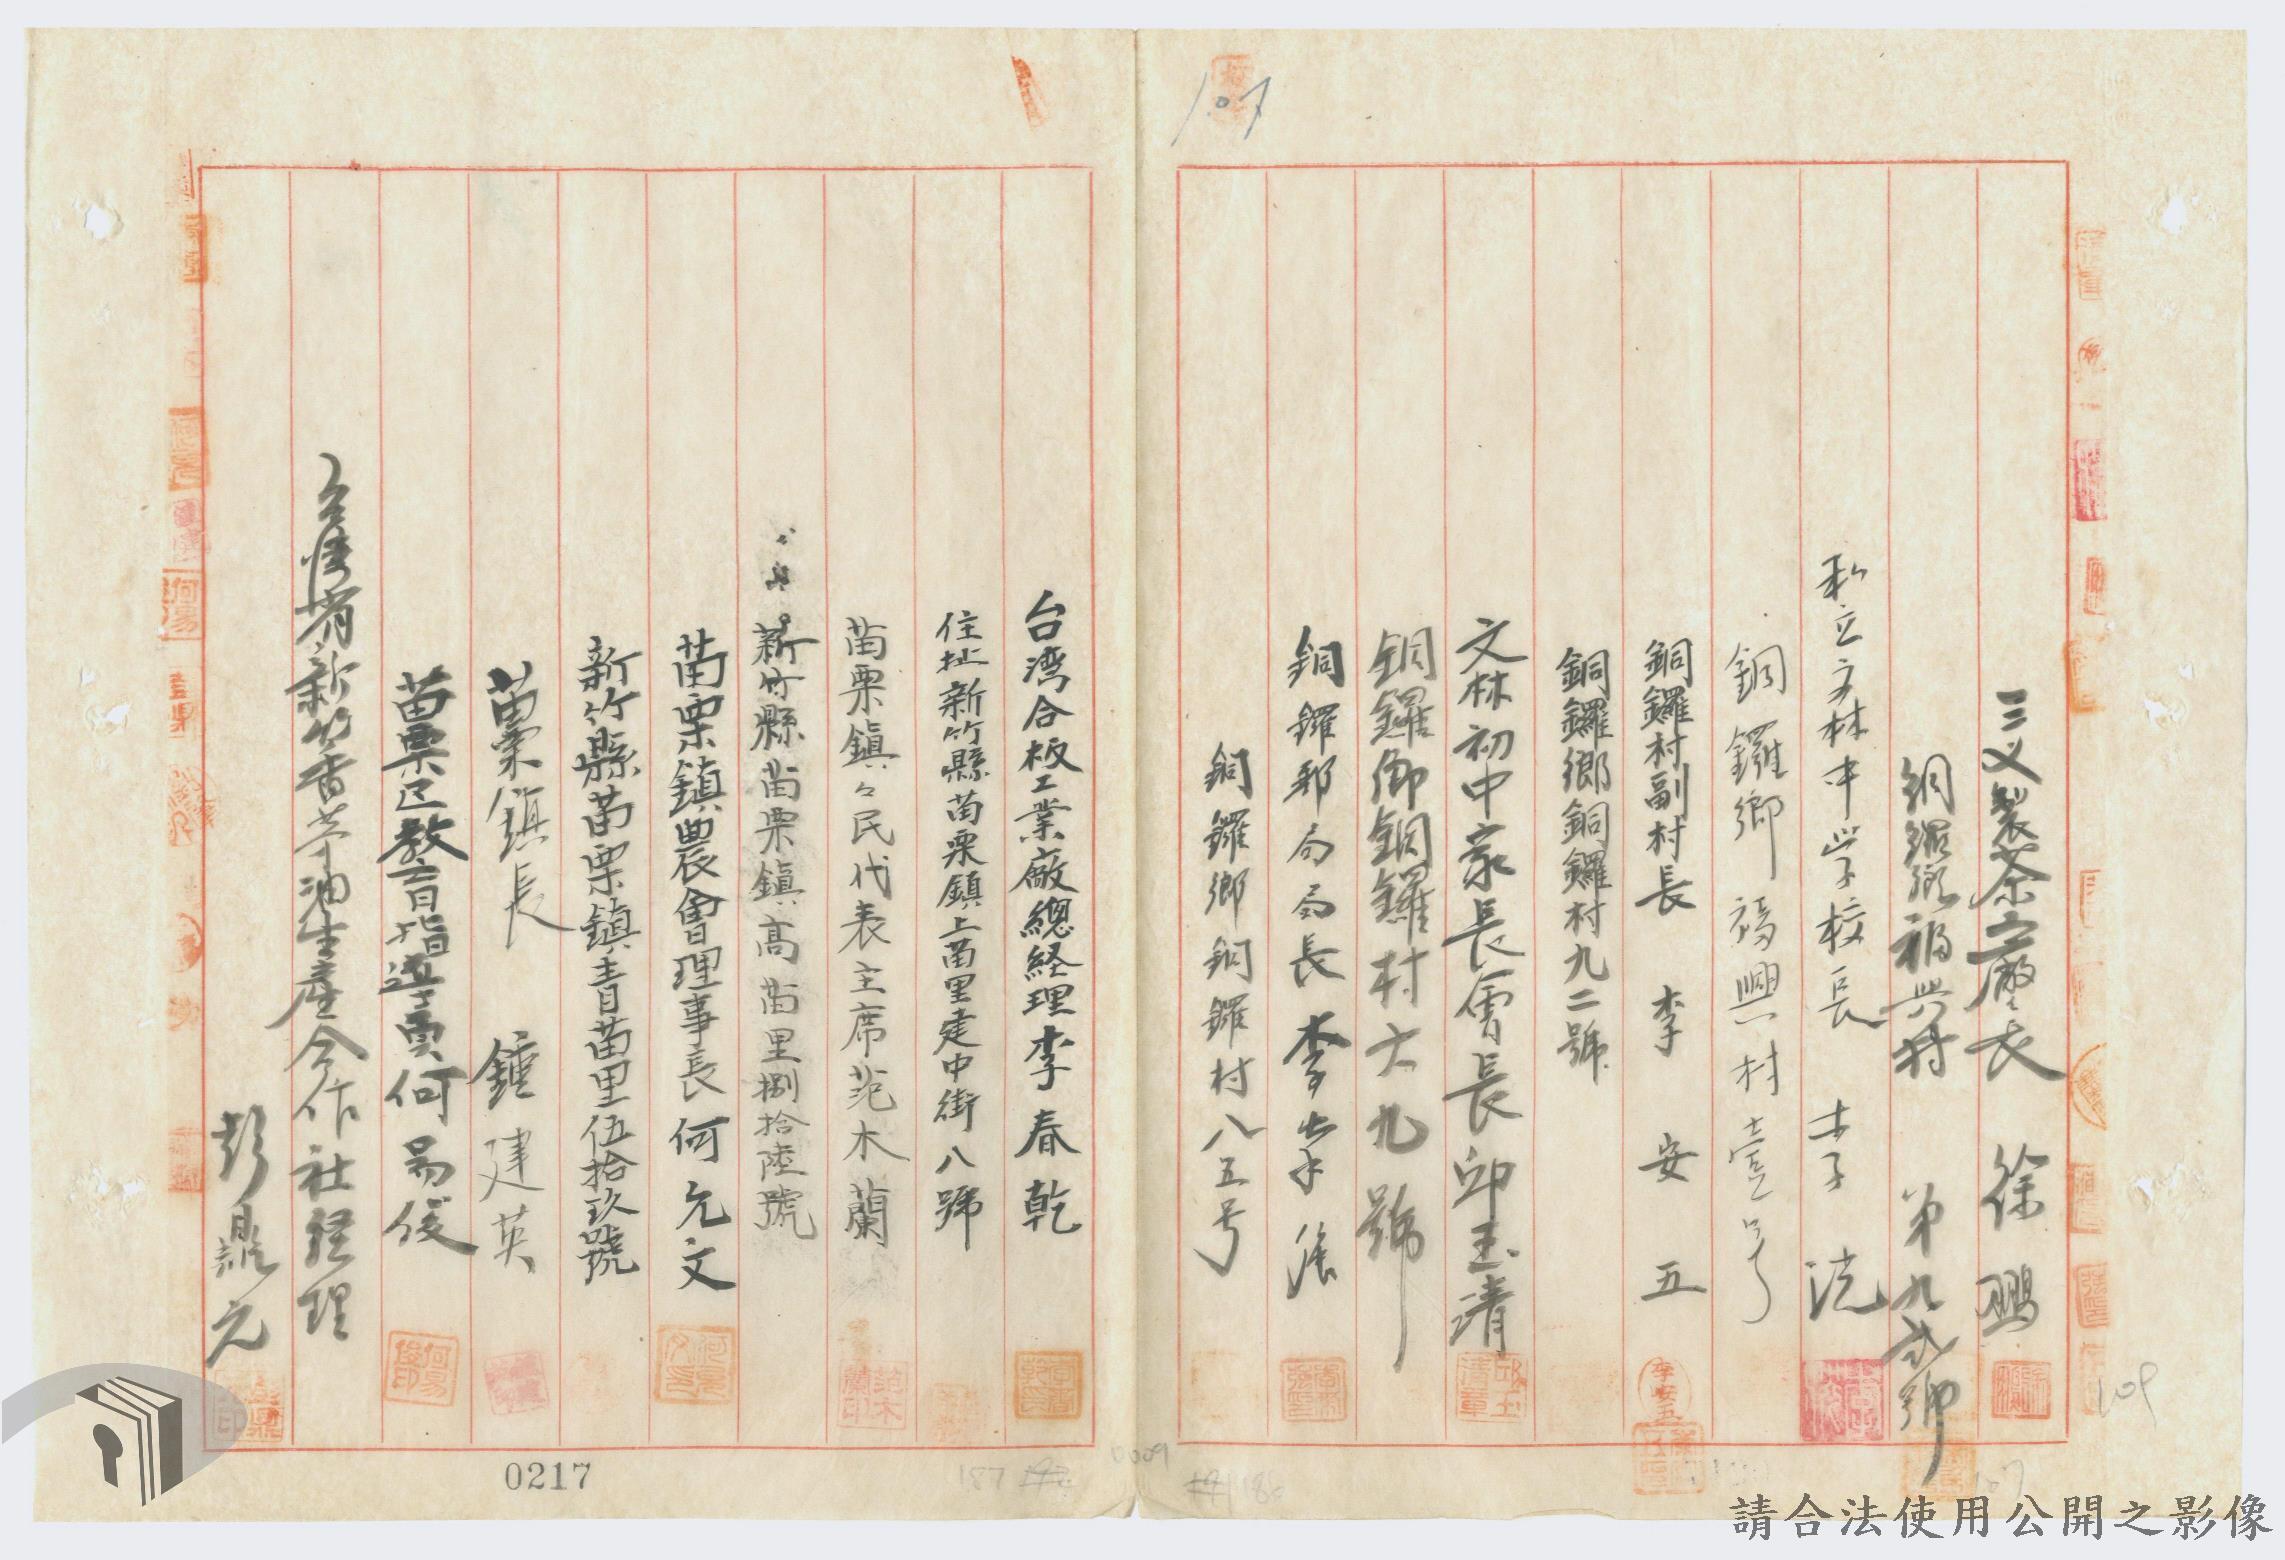 三义製茶工廠廠長　徐鵬
銅鑼鄉福興村　第九弍號
私立文林中学校長　李　洸
銅鑼鄉福興村壹号
銅鑼村副村長　李　安　五
銅鑼鄉銅鑼村九二號
文林初中家長會長邱玉清
銅鑼鄉銅鑼村六九號
銅鑼郵局局長
銅鑼鄉銅鑼村八五号
台湾合板工業廠總経理李春乾
住址新竹縣苗栗鎮上苗里建中街八號
苗栗鎮々民代表主席范木蘭
新竹縣苗栗鎮高苗里捌拾陸號
苗栗鎮農會理事長何允文
新竹縣苗栗鎮青苗里伍拾玖號
苗栗鎮長　鍾建英
苗栗区教育指導員何易俊
台湾省新竹香茅油生產合作社経理
彭鼎元
李安五
0217
107
109
187
0009
請合法使用公開之影像